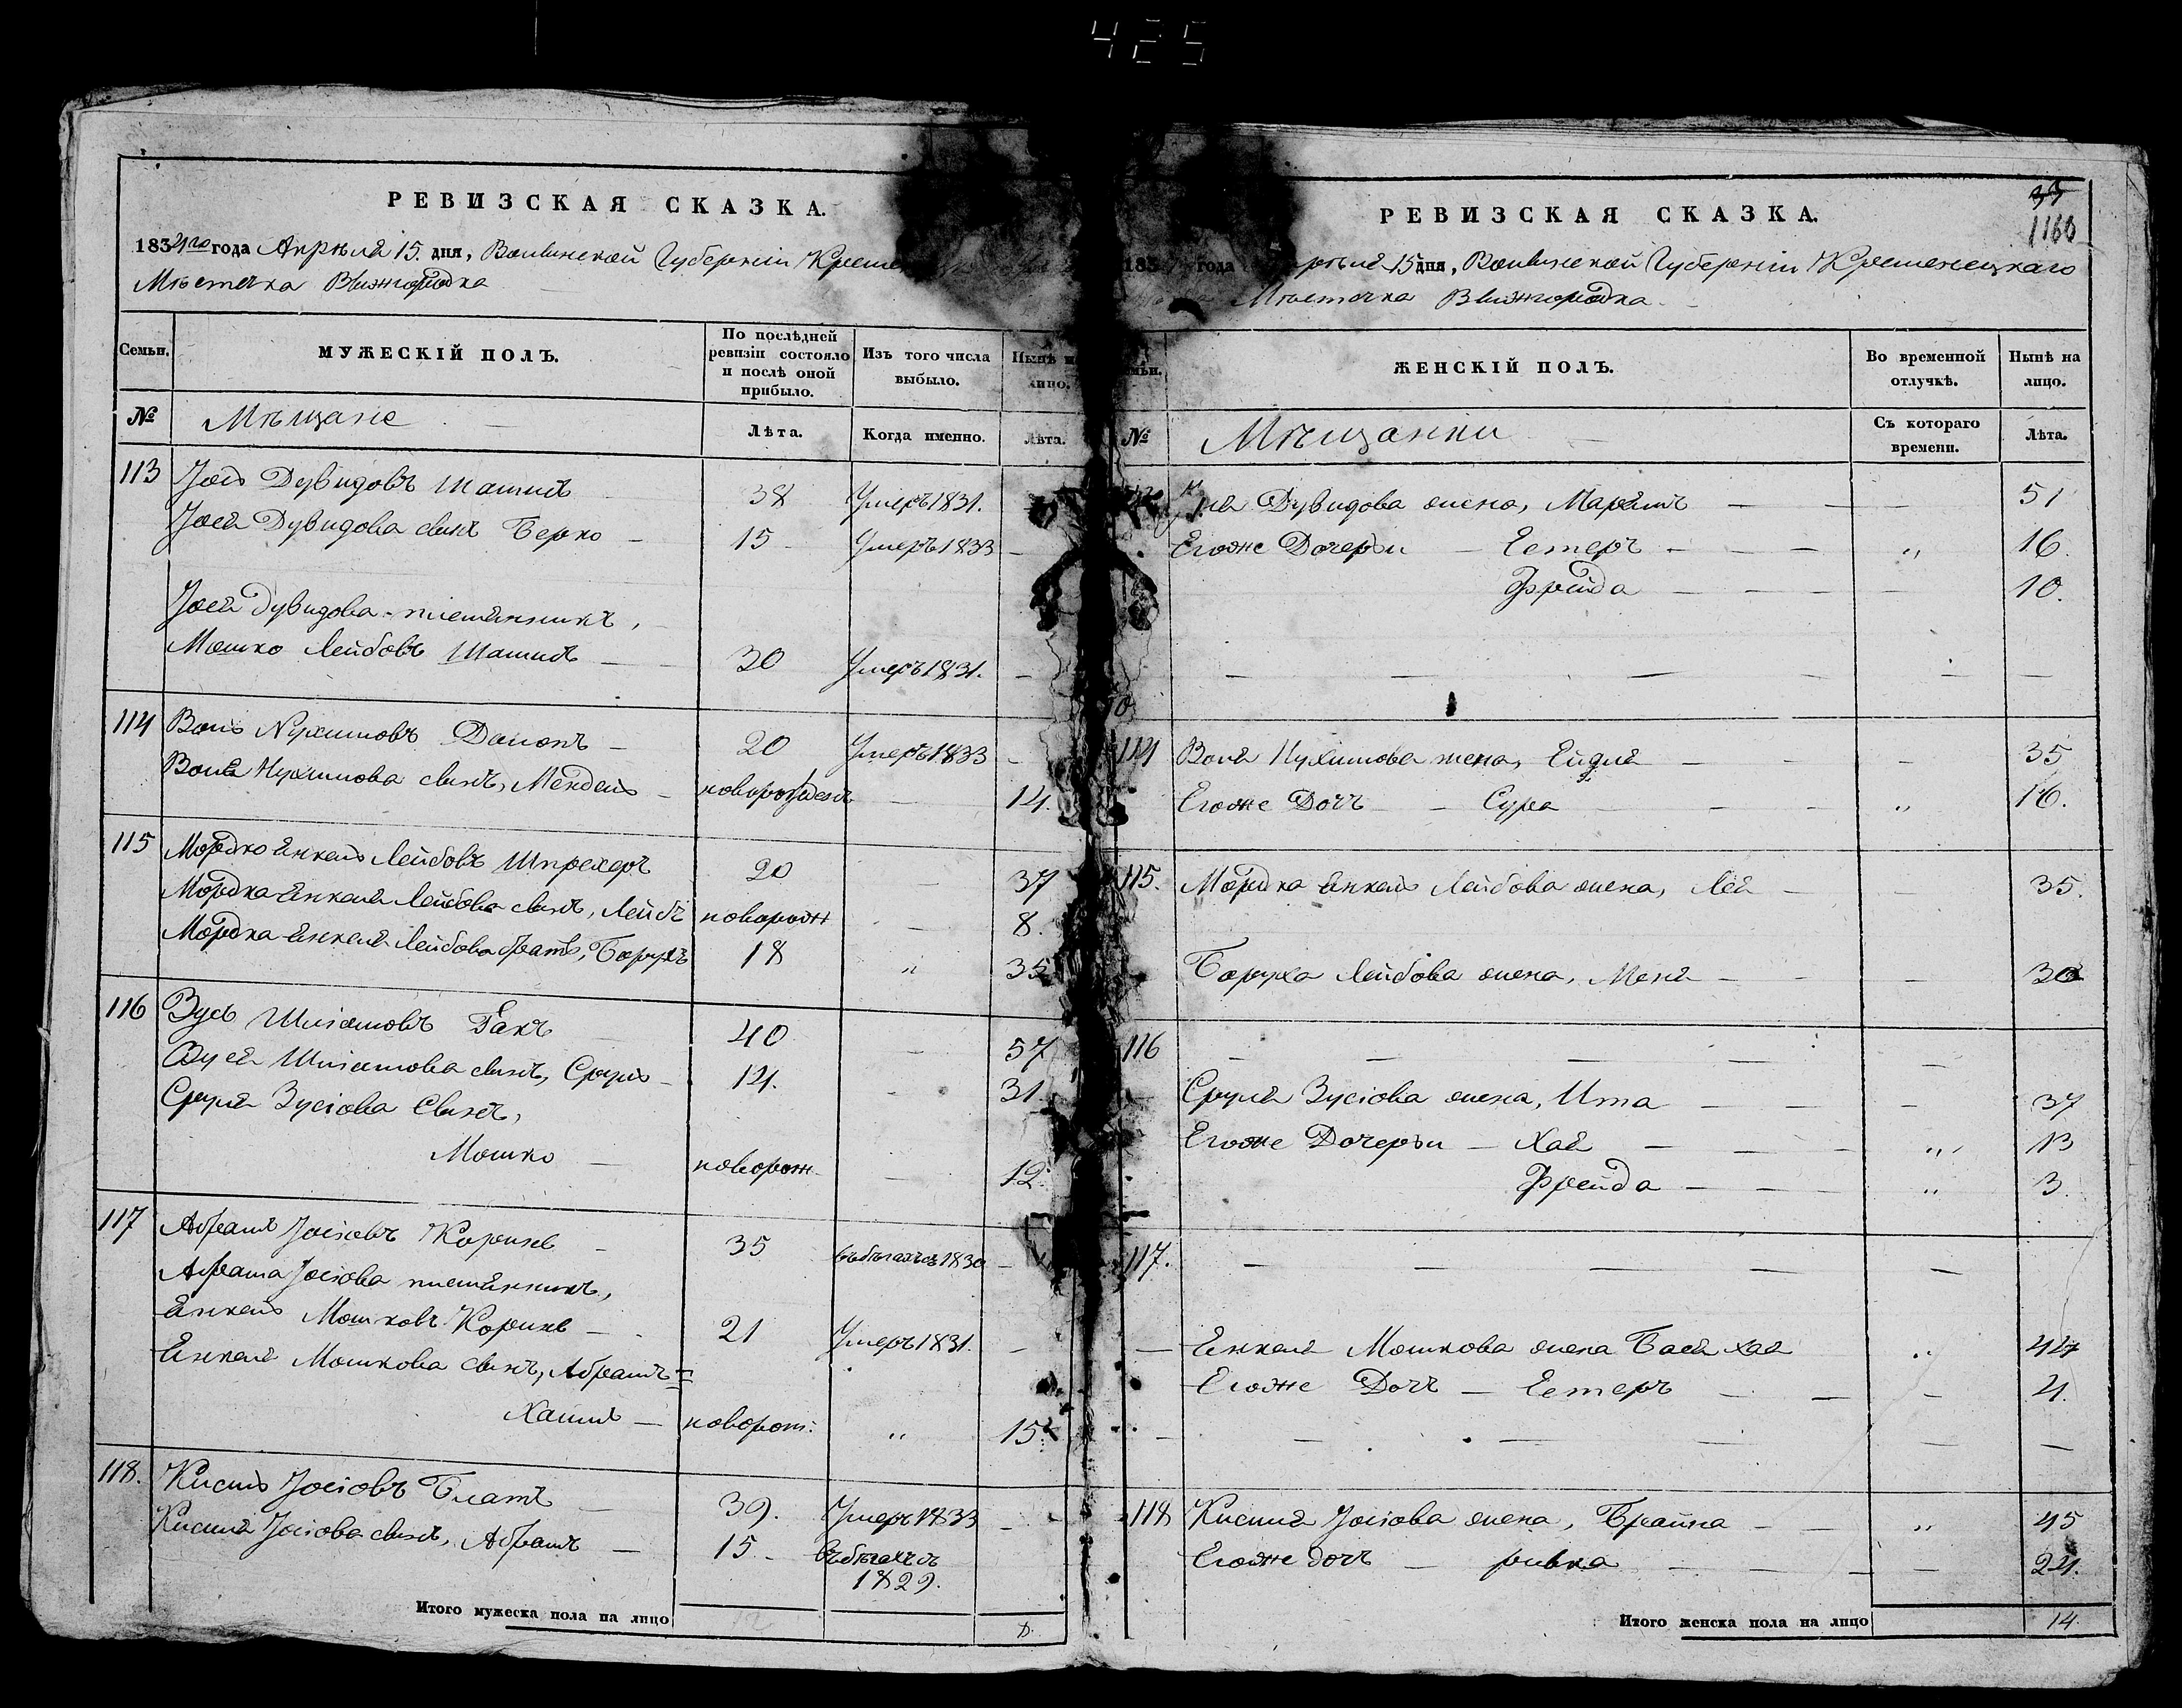 425
РЕВИЗСКАЯ СКАЗКА.
1834го года Апрѣля 15. дня, Волынской Губерніи
Мѣстечка Вышгородка
Семьи.
МУЖЕСКІЙ ПОЛЪ.
По послѣдней ревизіи состояло и послѣ оной прибыло.
Изъ того числа выбыло.
Нынѣ на лицо.
№
Мѣщане
Лѣта.
Когда именно.
Лѣта.
113 Іось Дувидовъ 38 Умеръ 1831.
Іося Дувидова сынъ Берко 15 Умеръ 1833
Іося Дувидова племянникъ,
Мошко Лейбовъ 30 Умеръ 1831.
114 Волъ Нухимовъ 20 Умеръ 1833
Воля Нухимова сынъ, Мендель новорожденъ 14.
115 Мордко Янкель Лейбовъ Шпрехеръ 20 37
Мордка Янкеля Лейбова сынъ, Лейбъ новорожд 8.
Мордка Янкеля Лейбова братъ, Борухъ 18 „ 35
116 Зусь Шліомовъ Гакъ 40 57
Зуся Шліомова сынъ, Сруль 14. 31
Сруля Зусіова Сынъ,
Мошко новорож 12.
117 Абрамъ Іосіовъ 35 въ бѣгахъ съ 1830
Абрама Іосіова племянникъ,
Янкель Мошковъ 21 Умеръ 1831.
Янкеля Мошкова сынъ, Абрамъ=
Хаимъ новорож: „ 15.
118. Кисиль Іосіовъ Блатъ 39. Умеръ 1833
Кисиля Іосіова сынъ, Абрамъ 15. въ бѣгахъ съ
1829.
Итого мужеска пола на лицо
33
1160
РЕВИЗСКАЯ СКАЗКА.
года Апрѣля 15 дня, Волынской Губерніи Кременецкаго
Мѣстечка Вышгородка
ЖЕНСКІЙ ПОЛЪ.
Во временной отлучкѣ.
Нынѣ на лицо.
№
Мѣщанки
Съ котораго времени.
Лѣта.
Дувидова жена, Маріямъ 51
Егоже Дочери Естеръ „ 16.
Фрейда 10.
114 Воля Нухимова жена, Ейдля 35
Егоже Дочь Сура „ 16.
115. Мордка Янкель Лейбова жена, Лея 35.
Боруха Лейбова жена, Меня 30
116
Сруля Зусіова жена, Ита 37
Егоже Дочери Хая „ 13
Фрейда „ 3.
117.
Янкеля Мошкова жена Бася Хая „ 42
Егоже Дочь Естеръ 4.
118 Кисиля Іосіова жена, Брайна „ 45
Егоже дочь ривка 24.
Итого женска пола на лицо 14.